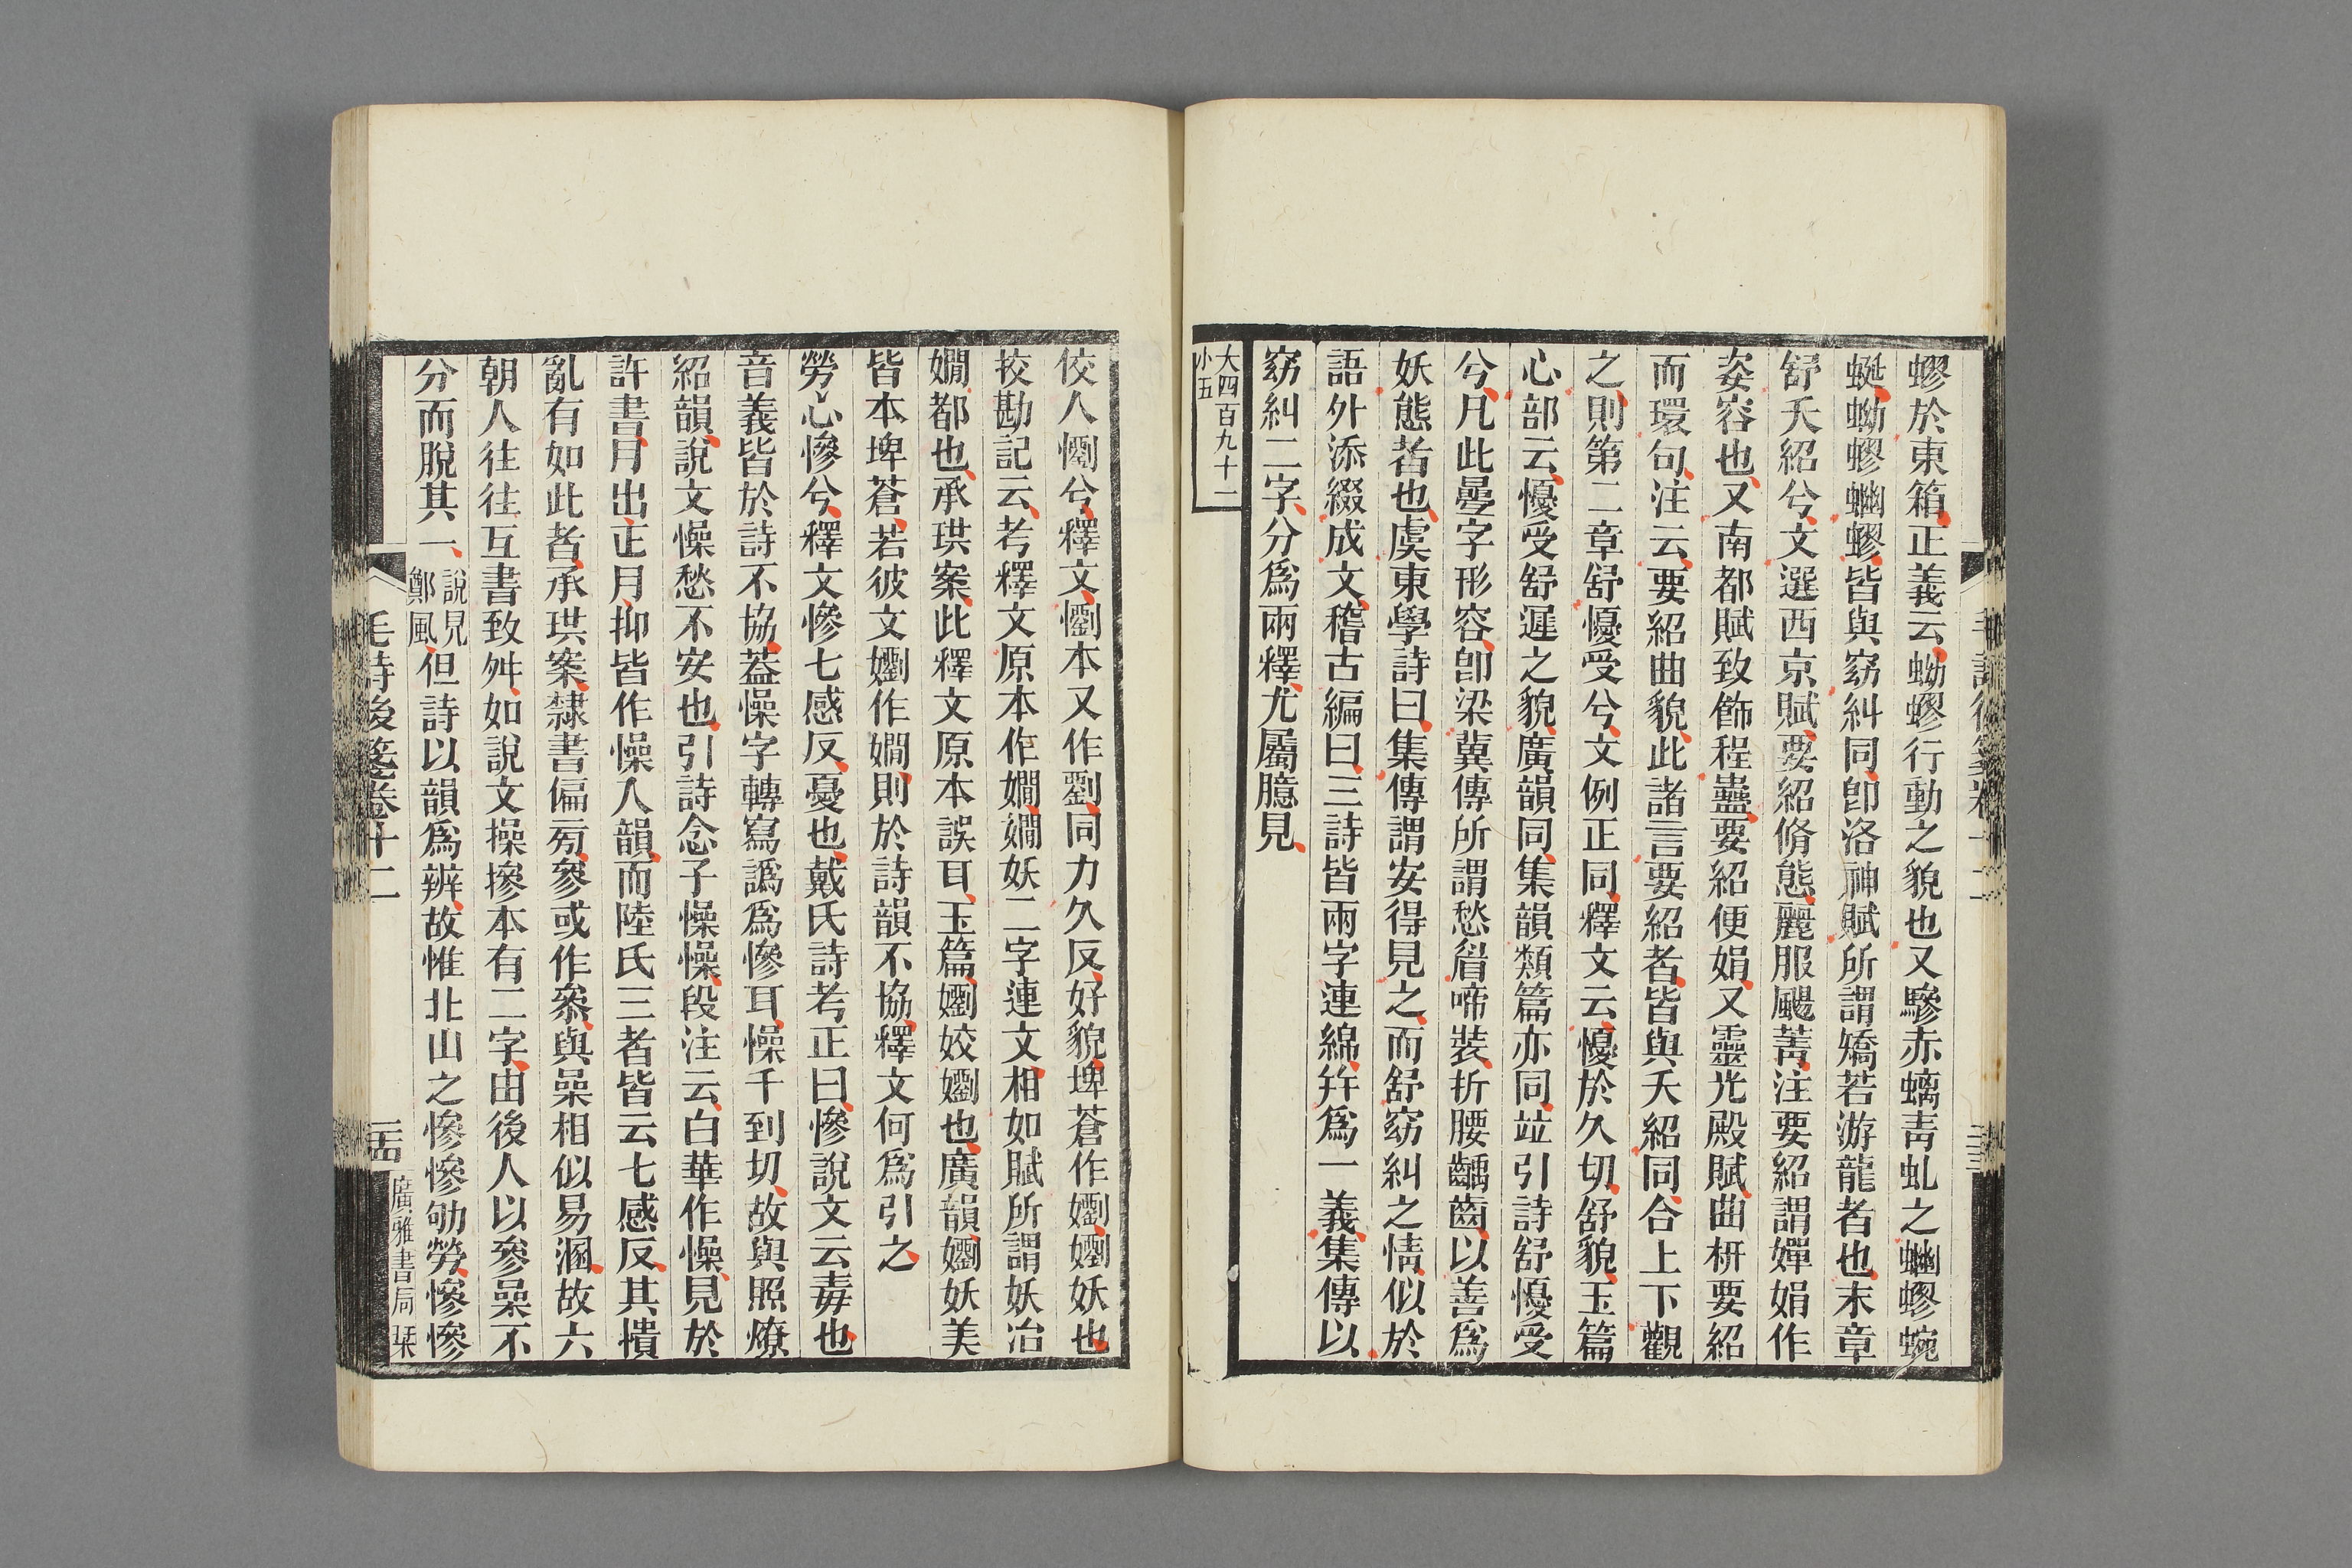 蟉於東箱正義云蚴蟉行動之貌也又驂赤螭靑虬之蟉蜿
蜒蚴蟉蟉皆與窈糾同卽洛神賦所謂矯若游龍者也末章
舒夭紹兮文選西京賦要紹脩態麗服颺菁注要紹謂嬋娟作
姿容也又南都賦致飾程蠱要紹便娟又靈光殿賦曲枅要紹
而環句注云要紹曲貌此諸言要紹者皆與夭紹同合上下觀
之則第二章舒懮受兮文例正同釋文云懮於久切舒貌玉篇
心部云懮受舒遲之貌廣韻同集韻類篇亦同竝引詩舒懮受
兮凡此曡字形容卽梁冀傳所謂愁眉啼裝折腰齲齒以善爲
妖態者也虞東學詩曰集傳謂安得見之而舒窈糾之情似於
語外添綴成文稽古編曰三詩皆兩字連綿幷爲一義集傳以
窈糾二字分爲兩釋尤屬臆見
大四百九十二
小五
佼人懰兮釋文懰本又作劉同力久反好貌埤蒼作嬼嬼妖也
挍勘記云考釋文原本作嫺嫺妖二字連文相如賦所謂妖冶
嫺都也承珙案此釋文原本誤耳玉篇嬼姣嬼也廣韻嬼妖美
皆本埤蒼若彼文嬼作嫺則於詩韻不協釋文何爲引之
勞心慘兮釋文慘七感反憂也戴氏詩考正曰慘說文云毒也
音義皆於詩不協葢懆字轉寫譌爲慘耳懆千到切故與照燎
紹韻說文懆愁不安也引詩念子懆懆段注云白華作懆見於
許書月出正月抑皆作懆入韻而陸氏三者皆云七感反其撌
亂有如此者承珙案隸書偏㫄參或作叅與喿相似易溷故六
朝人往往互書致舛如說文操摻本有二字由後人以參喿不
分而脫其一說見鄭風但詩以韻爲辨故惟北山之慘慘劬勞慘慘
毛詩後箋卷十二
廣雅書局栞